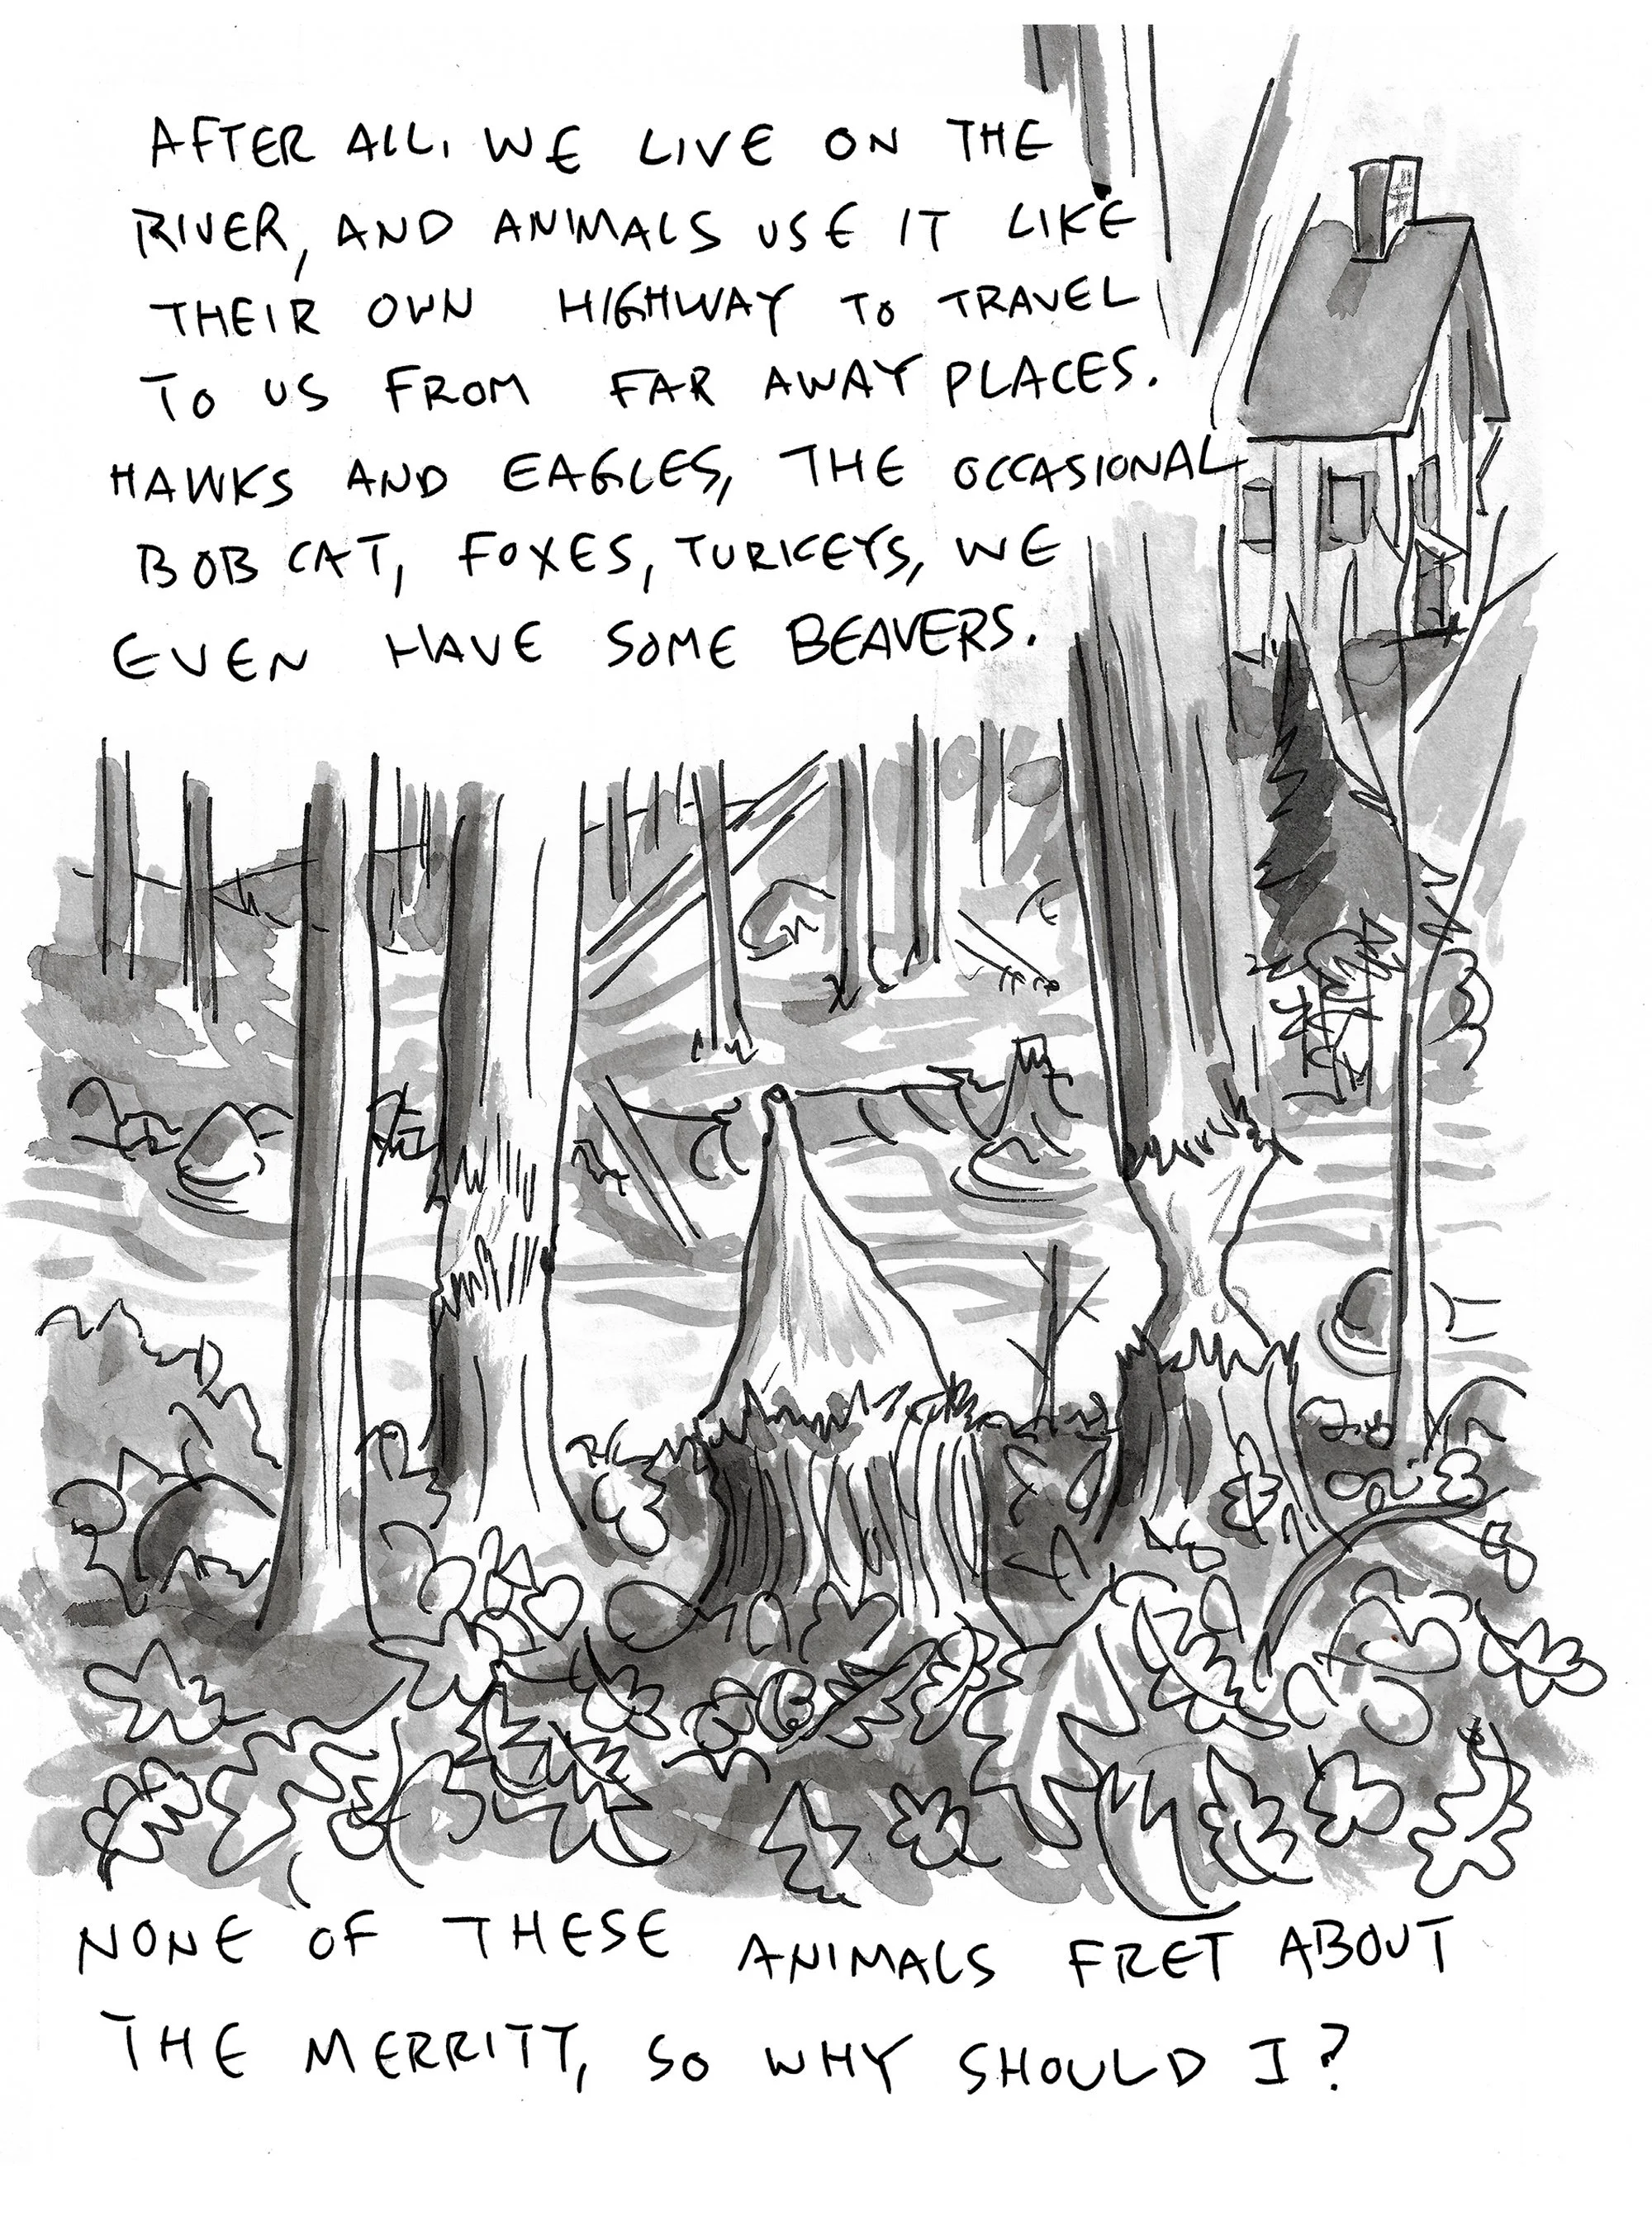 AFTER ALL, WE LIVE ON THE
RIVER, AND ANIMALS USE IT LIKE
THEIR OWN HIGHWAY TO TRAVEL
TO US FROM FAR AWAY PLACES.
HAWKS AND EAGLES, THE OCCASIONAL
BOB CAT, FOXES, TURKEYS, WE
EVEN HAVE SOME BEAVERS.
NONE OF THESE ANIMALS FRET ABOUT
THE MERRITT, SO WHY SHOULD I?